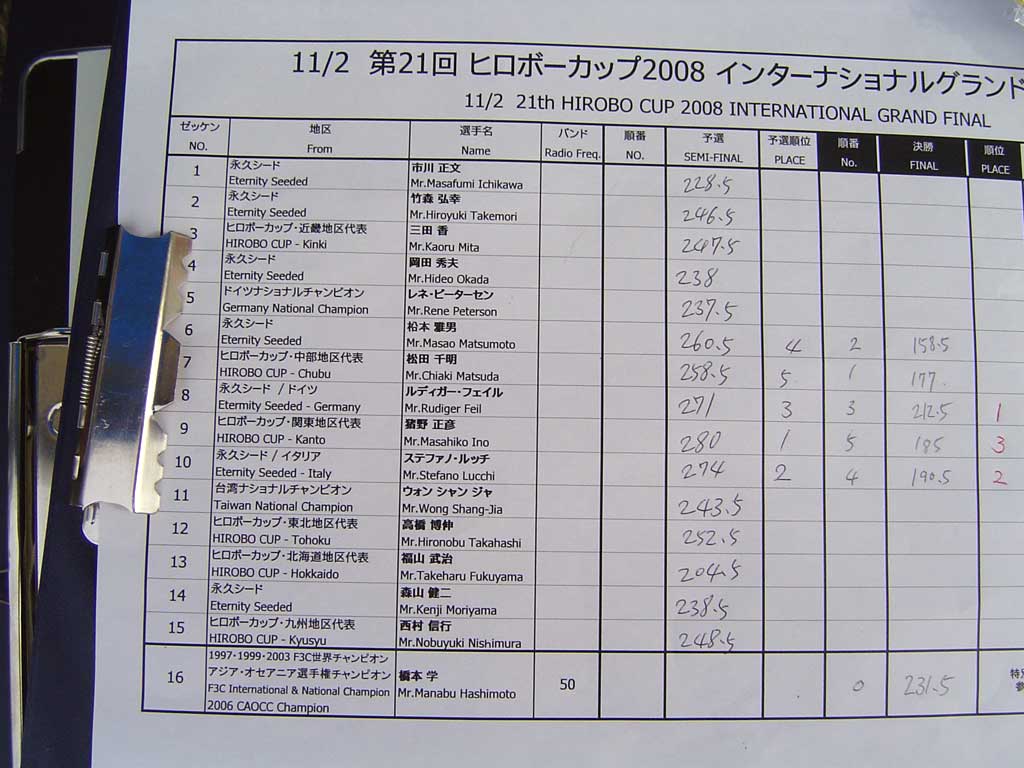 11/2 第21回 ヒロボーカップ2008 インターナショナルグランド
11/2 21th HIROBO CUP 2008 INTERNATIONAL GRAND FINAL
ゼッケン 地区 選手名 バンド 順番 予選 予選順位 順番 決勝 順位
NO. From Name Radio Freq. NO. SEMI-FINAL PLACE No. FINAL PLACE
1 永久シード 市川 正文
Eternity Seeded Mr.Masafumi Ichikawa 228.5
2 永久シード 竹森 弘幸
Eternity Seeded Mr.Hiroyuki Takemori 246.5
3 ヒロボーカップ・近畿地区代表 三田 香
HIROBO CUP - Kinki Mr.Kaoru Mita 247.5
4 永久シード 岡田 秀夫
Eternity Seeded Mr.Hideo Okada 238
5 ドイツナショナルチャンピオン レネ・ピーターセン
Germany National Champion Mr.Rene Peterson 237.5
6 永久シード 松本 雅男
Eternity Seeded Mr.Masao Matsumoto 260.5 4 2 158.5
7 ヒロボーカップ・中部地区代表 松田 千明
HIROBO CUP - Chubu Mr.Chiaki Matsuda 258.5 5 1 177
8 永久シード / ドイツ ルディガー・フェイル
Eternity Seeded - Germany Mr.Rudiger Feil 271 3 3 212.5 1
9 ヒロボーカップ・関東地区代表 猪野 正彦
HIROBO CUP - Kanto Mr.Masahiko Ino 280 1 5 185 3
10 永久シード / イタリア ステファノ・ルッチ
Eternity Seeded - Italy Mr.Stefano Lucchi 274 2 4 190.5 2
11 台湾ナショナルチャンピオン ウォン シャン ジャ
Taiwan National Champion Mr.Wong Shang-Jia 243.5
12 ヒロボーカップ・東北地区代表 高橋 博伸
HIROBO CUP - Tohoku Mr.Hironobu Takahashi 252.5
13 ヒロボーカップ・北海道地区代表 福山 武治
HIROBO CUP - Hokkaido Mr.Takeharu Fukuyama 204.5
14 永久シード 森山 健二
Eternity Seeded Mr.Kenji Moriyama 238.5
15 ヒロボーカップ・九州地区代表 西村 信行
HIROBO CUP - Kyusyu Mr.Nobuyuki Nishimura 248.5
1997・1999・2003 F3C世界チャンピオン
16 アジア・オセアニア選手権チャンピオン 橋本 学 50 0 231.5 特別
F3C International & National Champion Mr.Manabu Hashimoto 参
2006 CAOCC Champion